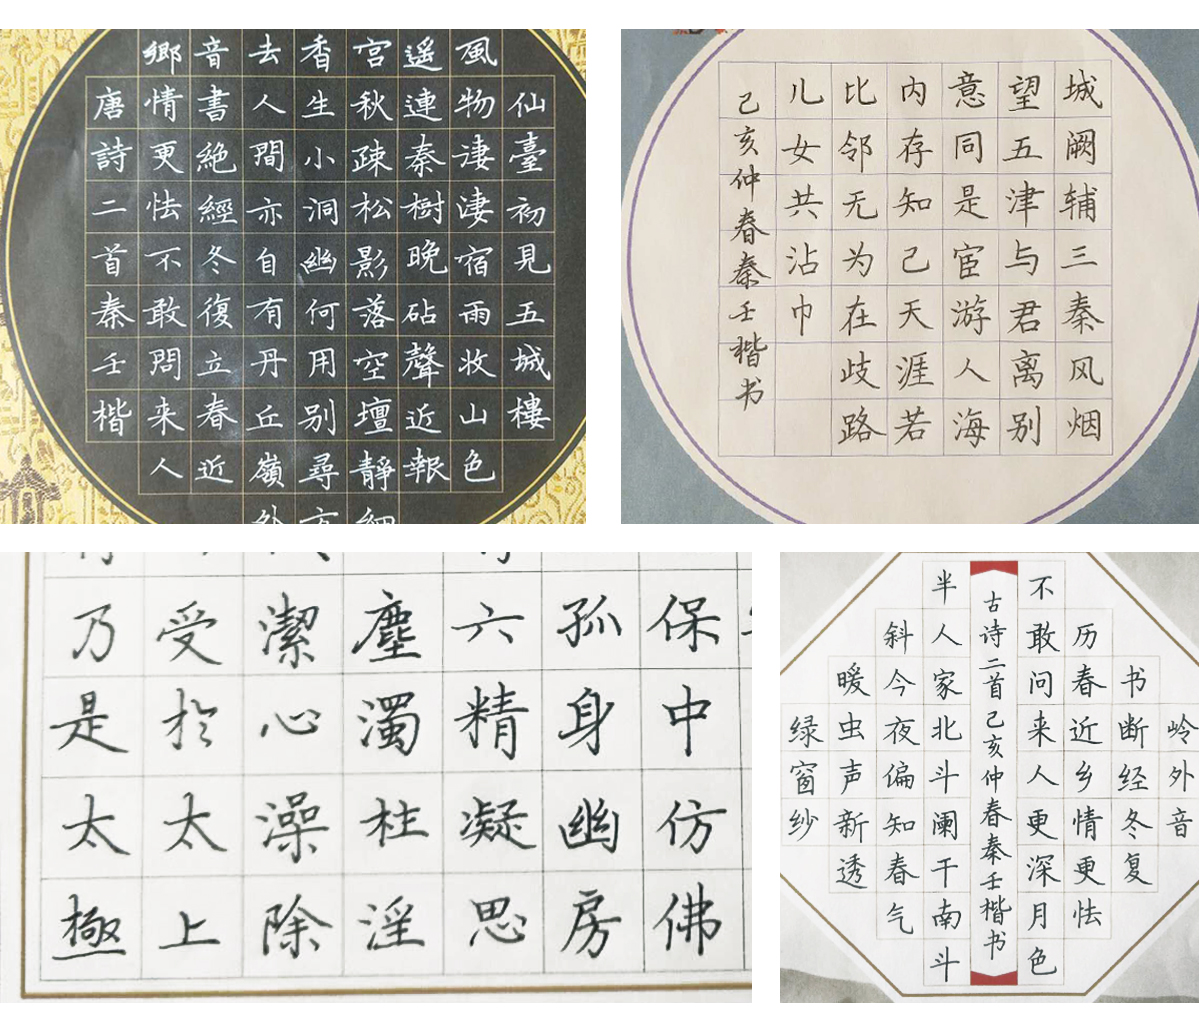 仙臺初見五城樓
風物淒淒宿雨收山色
遥連秦樹晚砧聲近報
宮秋疎松影落空壇靜細
香生小洞幽何用别尋方
去人間亦自有丹丘嶺外
音書絶經冬復立春近
鄉情更怯不敢問来人
唐詩二首秦壬楷
城阙辅三秦风烟
望五津与君离别
意同是宦游人海
内存知己天涯若
比邻无为在歧路
儿女共沾巾
己亥仲春秦壬楷书
保中仿佛
孤身幽房
六精凝思
塵濁柱淫
潔心澡除
受於太上
乃是太極
岭外音
书断经冬复
历春近乡情更怯
不敢问来人更深月色
古诗二首己亥仲春秦壬楷书
半人家北斗阑干南斗
斜今夜偏知春气
暖虫声新透
绿窗纱